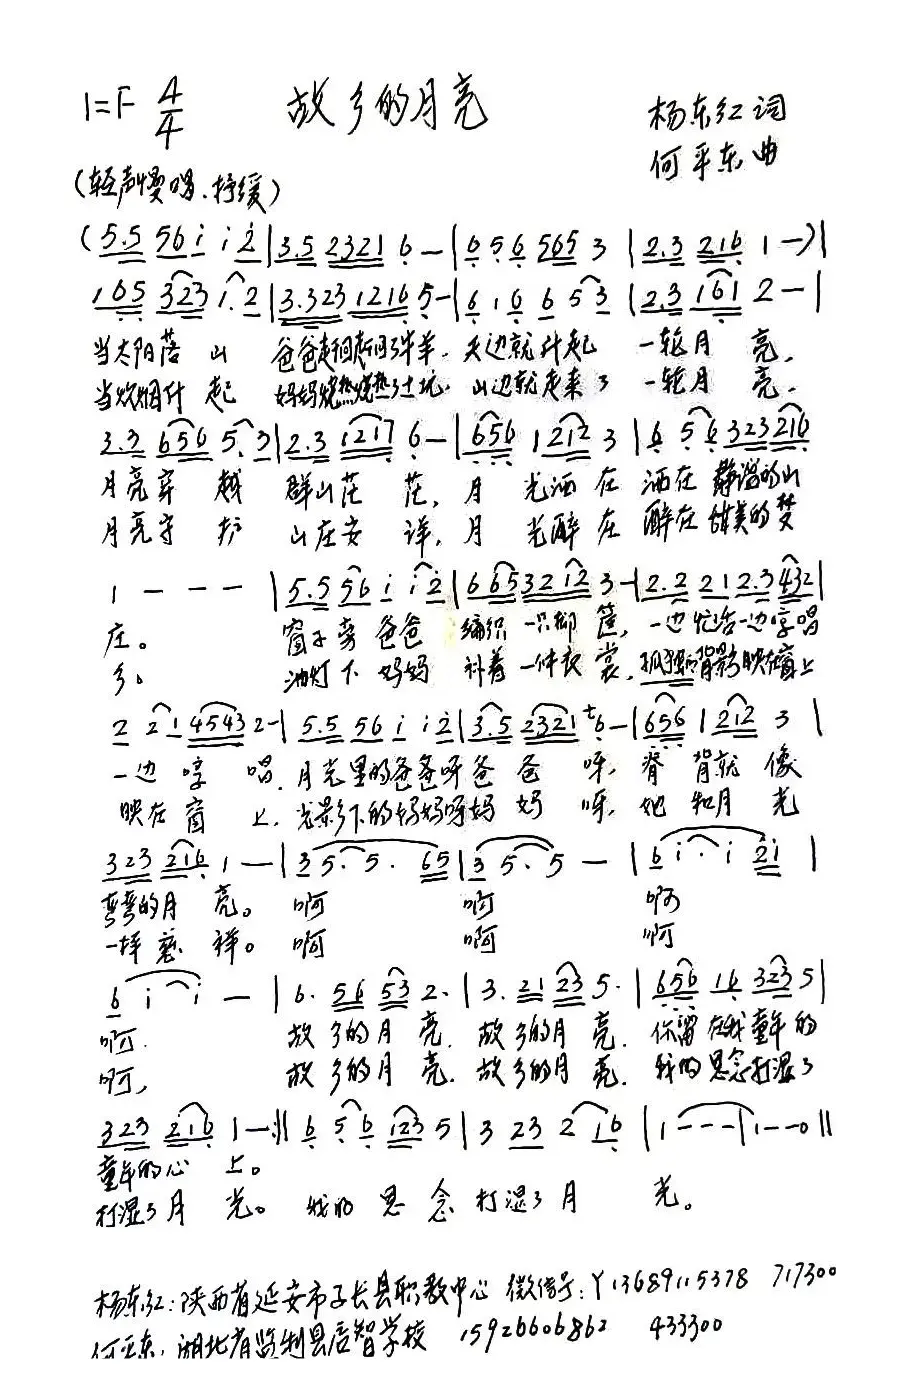 1=F 4/4 故乡的月亮 杨东红 词
何平东 曲
(轻声慢唱、抒缓)
(5.5 56 i i 2|3.5 2321 6 —|6 5 6 565 3|2.3 216 1 —)|
165 323 1.2|3.323 1216 5—|6 16 6 5 3|2.3 161 2—|
当太阳落 山 爸爸赶回赶回了牛羊. 天边就升起 一轮月 亮.
当炊烟升 起 妈妈烧热烧热了土炕. 山边就走来了 一轮月 亮.
3.3 656 5.3|2.3 1217 6—|656 1212 3|6 5 6 323216
月亮穿 越 群山茫 茫, 月 光洒 在 洒在 静谧的山
月亮守 护 山庄安 详, 月 光醉 在 醉在 甜美的梦
1 — — — |5.5 56 i i 2|6 6532 12 3—|2.2 21 2.3 432|
庄。 窗子旁 爸爸 编织 一只柳 筐, 一边忙活一边哼唱
乡。 油灯下 妈妈 补着 一件衣 裳, 孤独的背影映在窗上
2 2 1 4543 2—|5.5 56 i i2|3.5 2321 6—|656 1212 3 |
一边 哼 唱. 月光里的爸爸呀爸 爸 呀, 脊 背就 像
映在 窗 上. 光影下的妈妈呀妈 妈 呀, 她 和月 光
323 216 1 —|3 5. 5. 65|3 5. 5 —|6 i. i 2i |
弯弯的月 亮。 啊 啊 啊
一样慈 祥。 啊 啊 啊
6 i i i — |6. 56 53 2.|3. 21 23 5.|656 16 323 5|
啊. 故乡的月 亮. 故乡的月 亮. 你留在我童年的
啊, 故乡的月 亮. 故乡的月 亮. 我的思念打湿了
323 216 1—:‖ 6 5 6 123 5|3 23 2 16|1---|1--0‖
童年的心 上。
打湿了月 光。 我的 思 念 打湿了月 光。
杨东红:陕西省延安市子长县职教中心 微信号:Y13689115378 717300
何平东:湖北省监利县启智学校 15926606862 433300